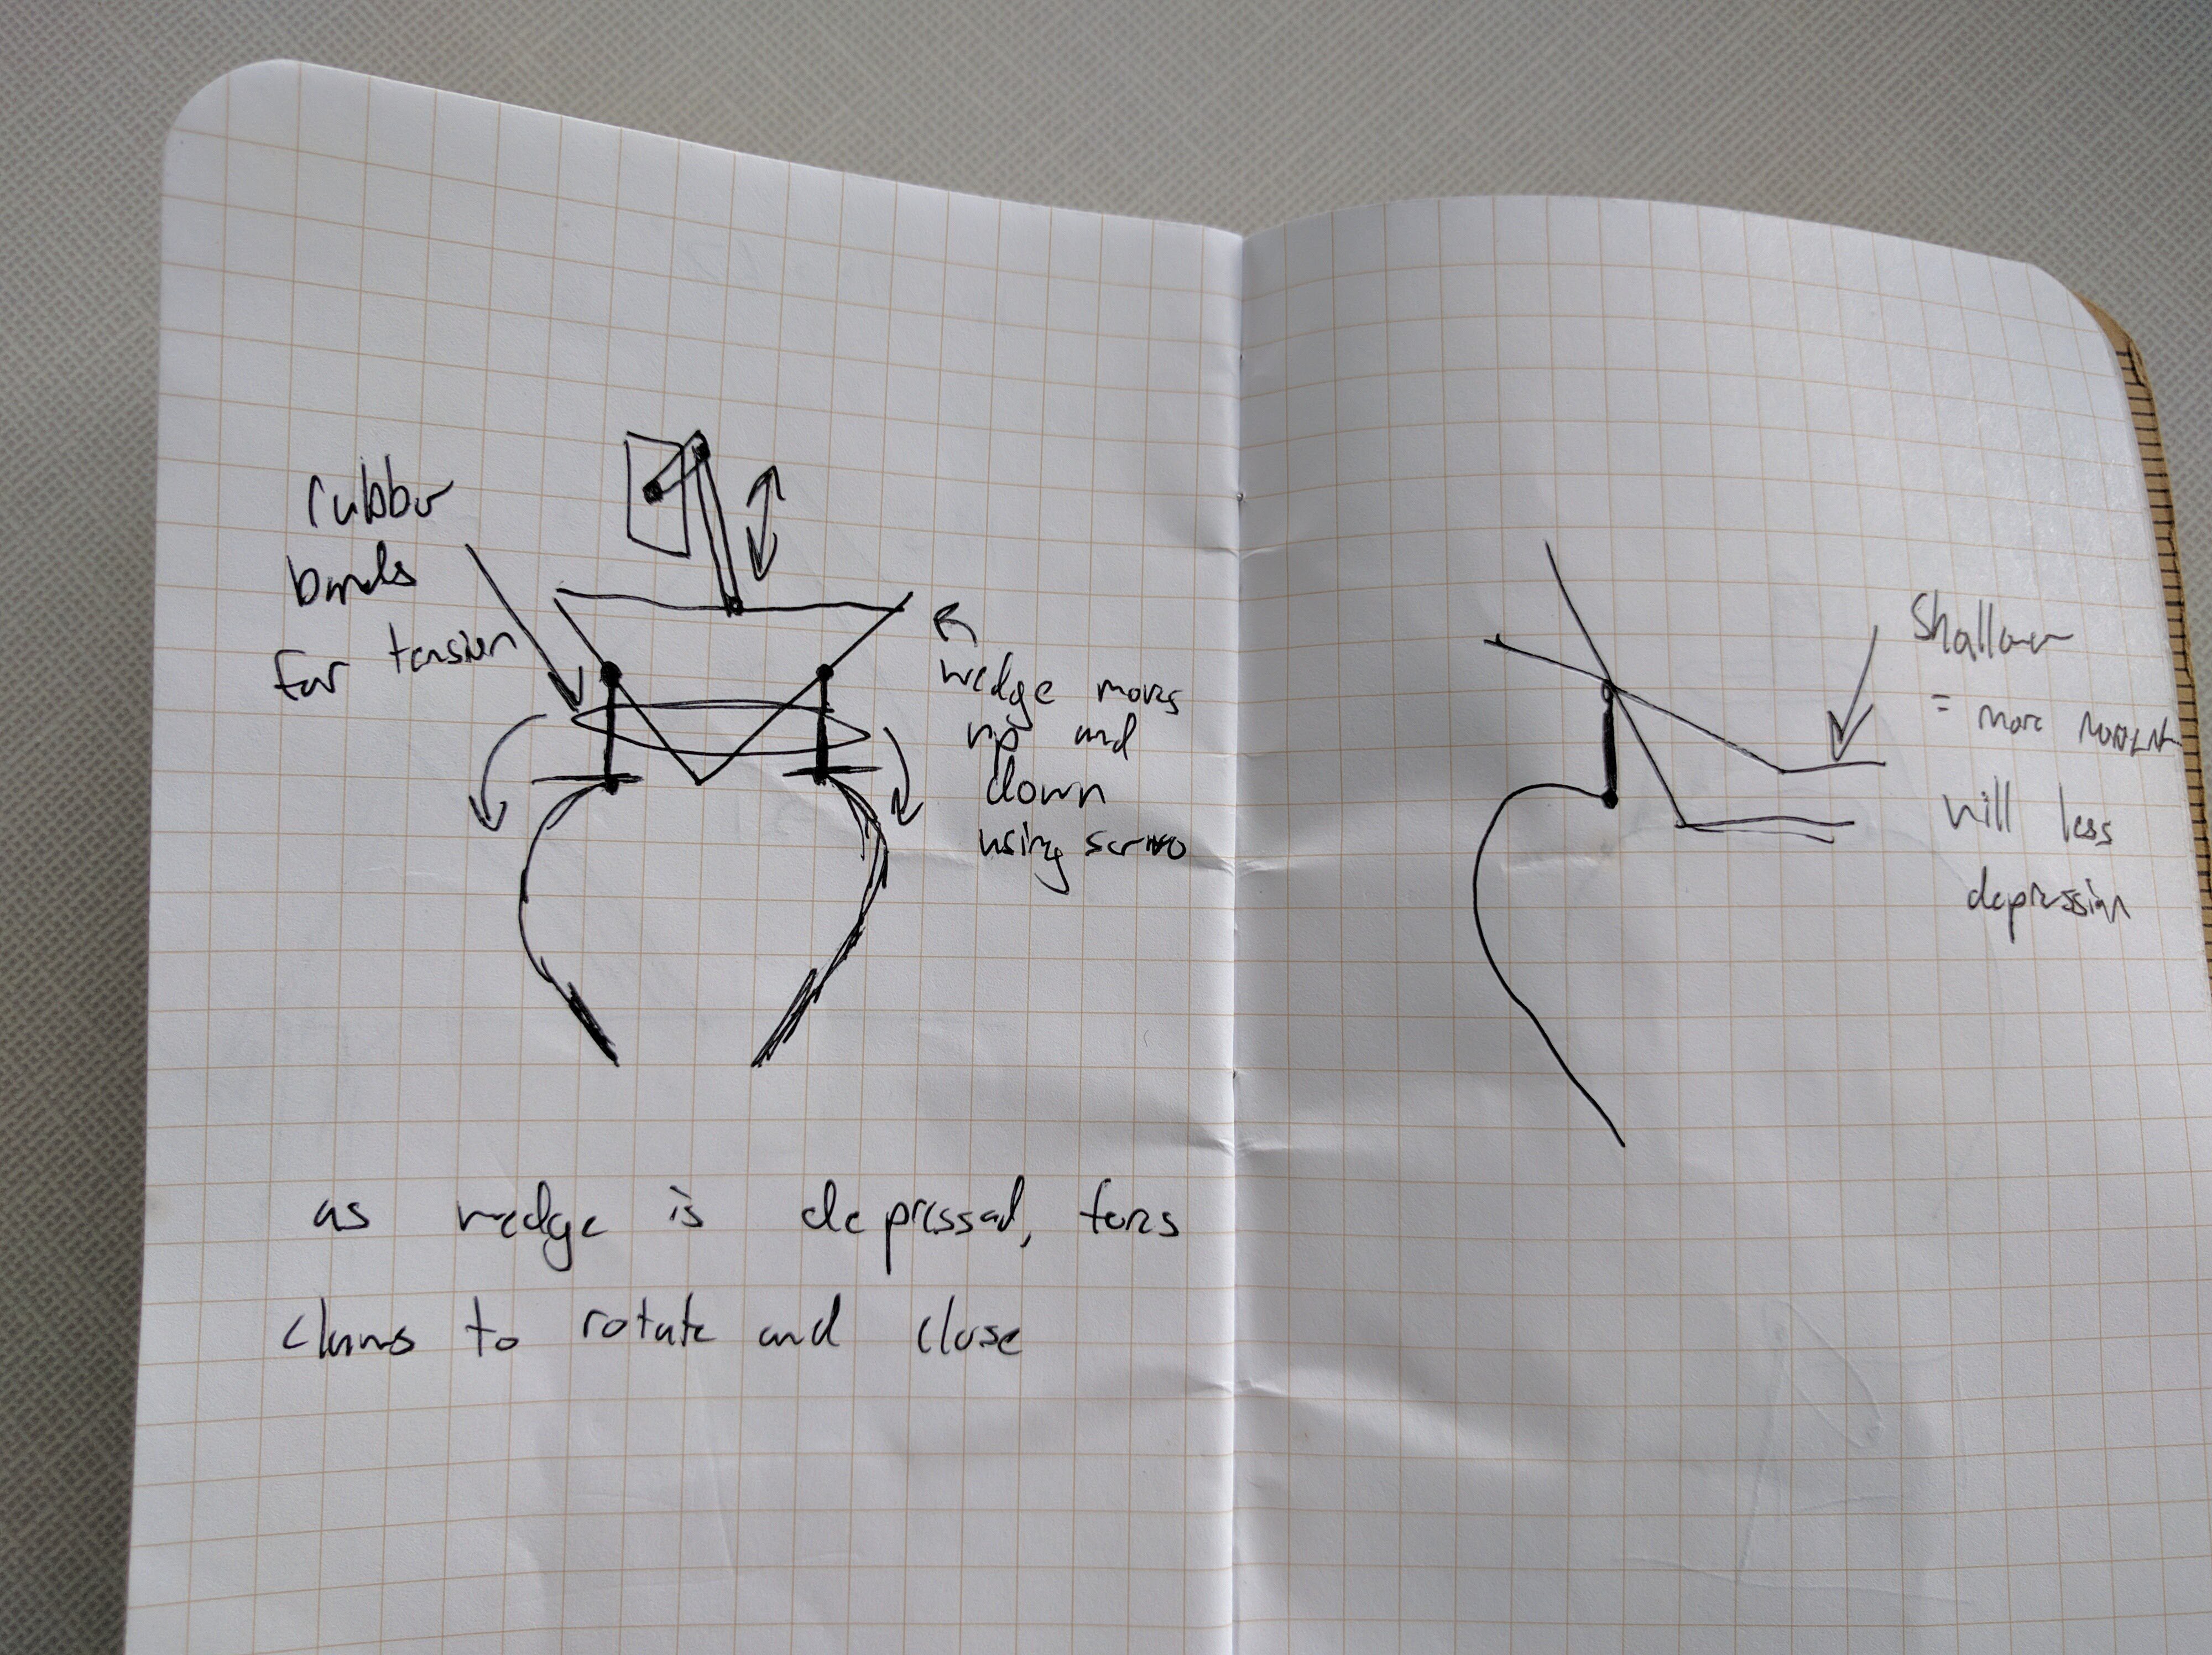 rubber
bands
for tension
wedge moves
up and
down
using servo
as wedge is depressed, forcs
claws to rotate and close
Shallower
= more movement
will less
depression